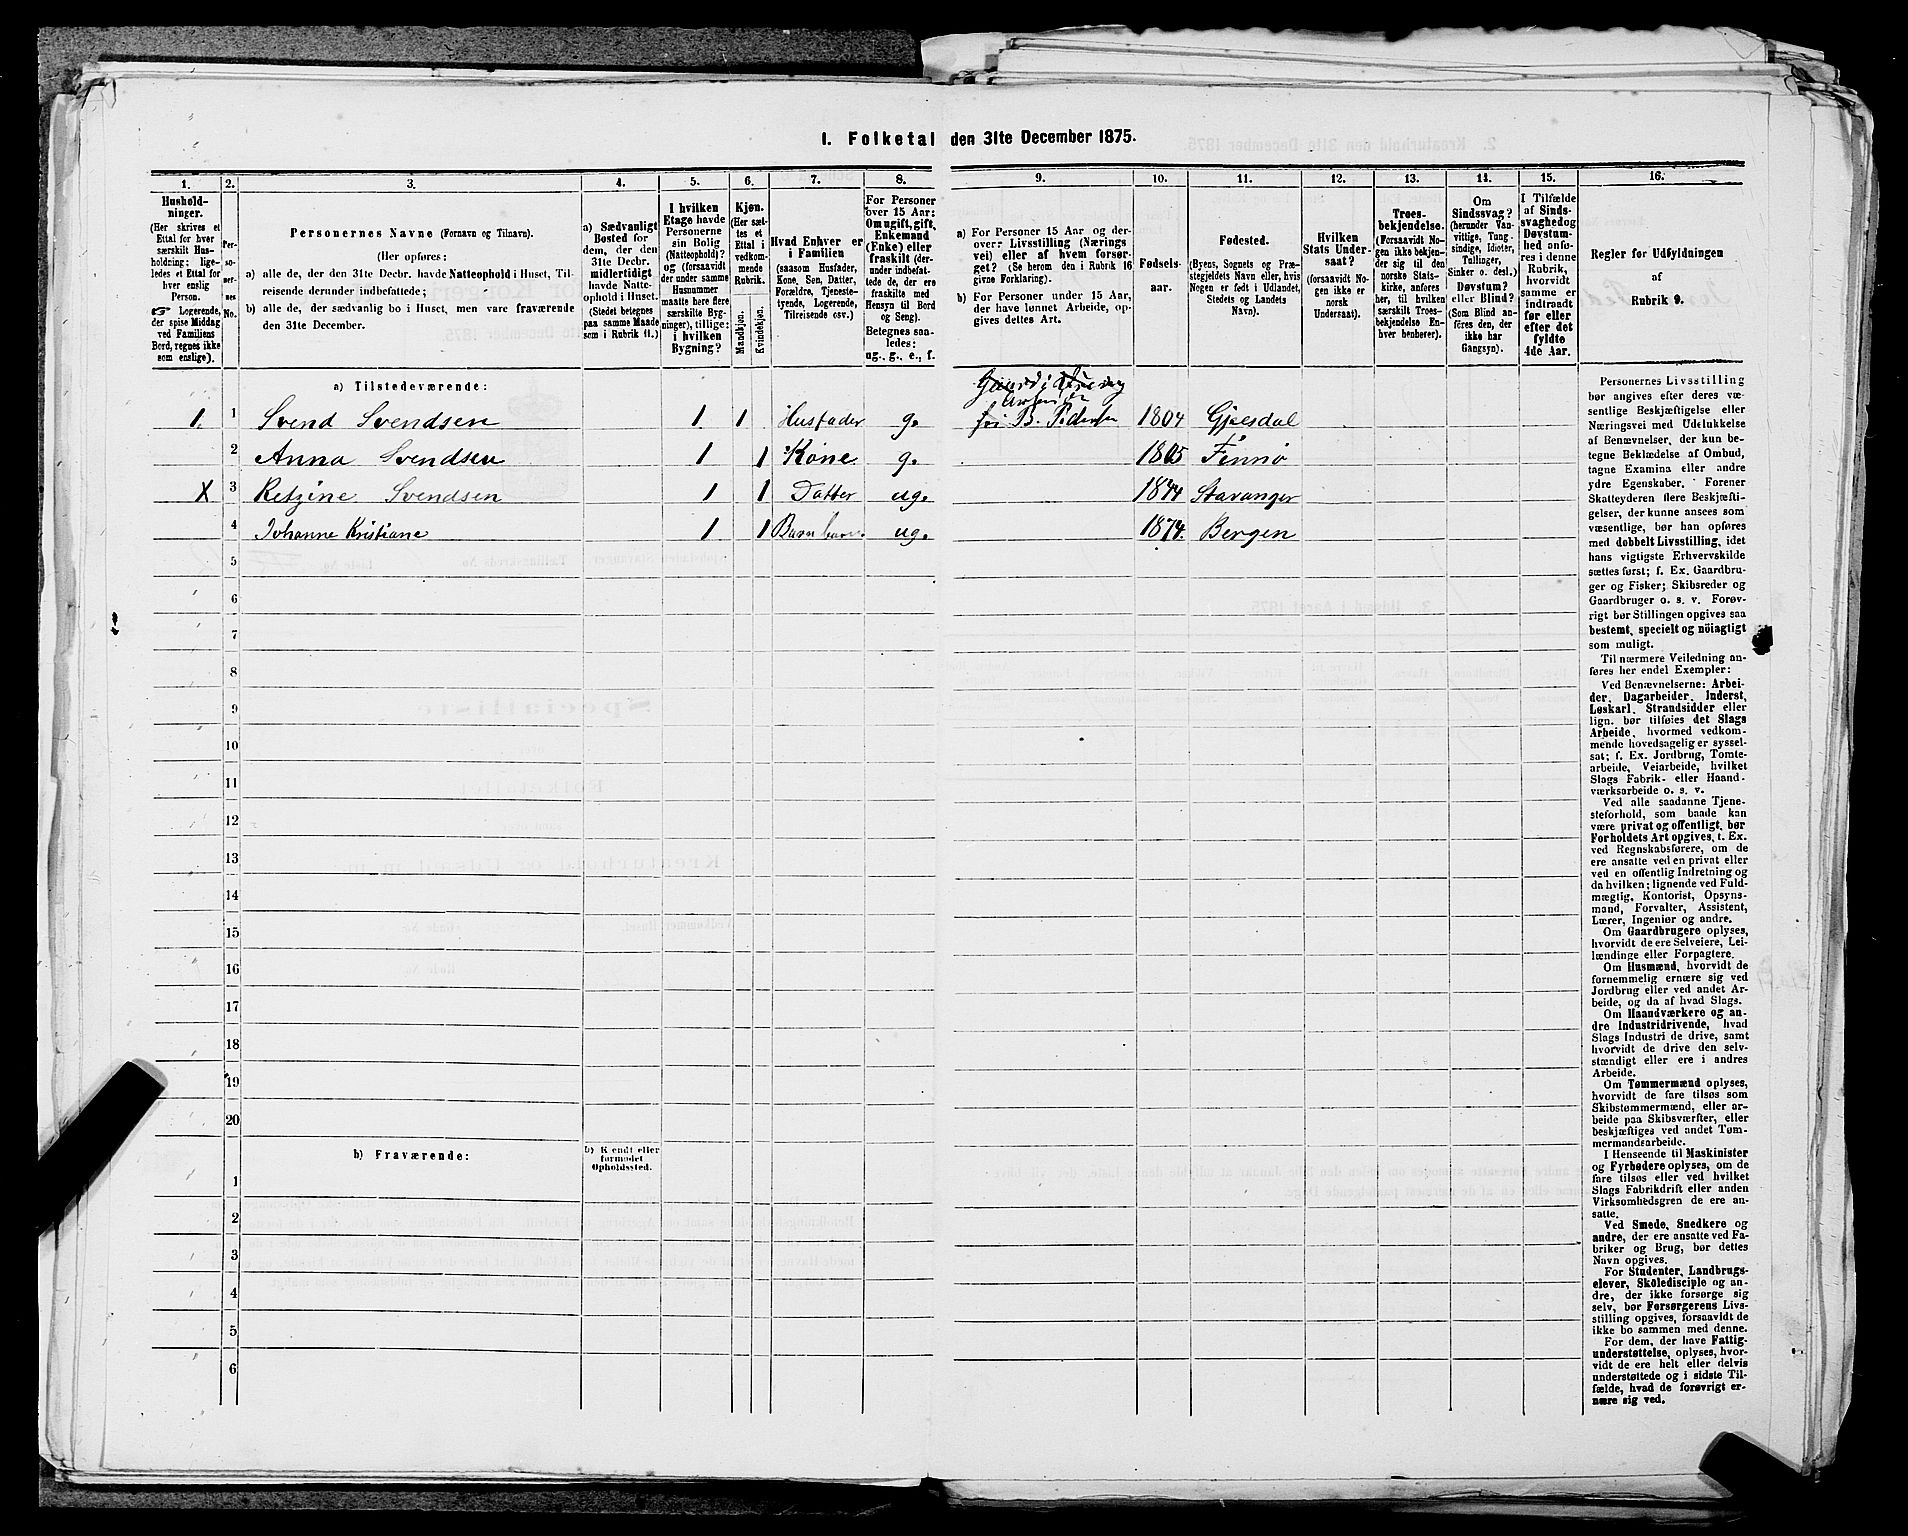 1. Folketal den 31te December 1875.
1.
Hushold-
ninger.
(Her skrives et
Ettal for hver
særskilt Hus-
holdning; lige-
ledes et Ettal for
hver enslig
Person.
Logerende,
der spise Middag
ved Familiens
Bord, regnes ikke
som enslige).
2.
Per-
so-
ner-
nes
No.
3.
Personernes Navne (Fornavn og Tilnavn).
(Her opføres:
a) alle de, der den 31te Decbr. havde Natteophold i Huset, Til-
reisende derunder indbefattede;
b) alle de, der sædvanlig bo i Huset, men vare fraværende
den 31te December.
4.
a) Sædvanligt
Bosted for
dem, der den
31te Decbr.
midlertidigt
havde Natte-
ophold i Huset.
(Stedet betegnes
paa samme Maade
som i Rubrik 11.)
5.
I hvilken
Etage havde
Personerne
sin Bolig
(Natteophold)?
og (forsaavidt
der under samme
Husnummer
maatte høre flere
særskilte Byg-
ninger), tillige:
i hvilken
Bygning?
6.
Kjøn.
(Her sæt-
tes et
Ettal i
vedkom-
mende
Rubrik.
Mandkjøn.
Kvindekjøn.
7.
Hvad Enhver er
i Familien
(saasom Husfader,
Kone, Søn, Datter,
Forældre, Tjeneste-
tyende, Logerende,
Tilreisende osv.)
8.
For Personer
over 15 Aar:
Om ugift, gift,
Enkemand
(Enke) eller
fraskilt (der-
under indbefat-
tede de, der ere
fraskilte med
Hensyn til Bord
og Seng).
Betegnes saa-
ledes:
ug., g., e., f.
9.
a) For Personer 15 Aar og der-
over: Livsstilling (Nærings
vei) eller af hvem forsør-
get? (Se herom den i Rubrik 16
givne Forklaring).
b) For Personer under 15 Aar,
der have lønnet Arbeide, op-
gives dettes Art.
10.
Fødsels-
aar.
11.
Fødested.
(Byens, Sognets og Præ-
stegjeldets Navn eller, hvis
Nogen er født i Udlandet,
Stedets og Landets
Navn).
12.
Hvilken
Stats Under-
saat?
(forsaavidt No-
gen ikke er
norsk
Undersaat).
13.
Troes-
bekjendelse.
(Forsaavidt No-
gen ikke bekjen-
der sig til den
norske Stats-
kirke, anføres
her, til hvilken
særskilt Troes-
bekjendelse En-
hver henhører).
14.
Om
Sindssvag?
(herunder Van-
vittige, Tung-
sindige, Idioter,
Tullinger,
Sinker o. desl.)
Døvstum?
eller Blind?
(Som Blind an-
føres den, der
ikke har
Gangsyn).
15.
I Tilfælde
af Sinds-
svaghed og
Døvstum-
hed anfø-
res i denne
Rubrik,
hvorvidt
samme er
indtraadt
før eller
efter det
fyldte
4de Aar.
16.
Regler for Udfyldningen
af
Rubrik 9.
a) Tilstedeværende:
Gaard
Arbeider
1. 1 Svend Svendsen 1 1 Husfader g. for B. Pedersen 1804 Gjesdal
2 Anna Svendsen 1 1 Kone g. 1805 Finnø
X 3 Retzine Svendsen 1 1 Datter ug. 1844 Stavanger
4 Johanne Kristiane 1 1 Barnebarn. ug. 1874. Bergen
5
6
7
8
9
10
11
12
13
14
15
16
17
18
19
20
b) Fraværende:
b) Kjendt eller
formodet
Opholdssted.
1
2
3
4
5
6
Personernes Livsstilling
bør angives efter deres væ-
sentlige Beskjæftigelse eller
Næringsvei med Udelukkelse
af Benævnelser, der kun be-
tegne Beklædelse af Ombud,
tagne Examina eller andre
ydre Egenskaber. Forener
Skatteyderen flere Beskjæfti-
gelser, der kunne ansees som
væsentlige, bør han opføres
med dobbelt Livsstilling, idet
hans vigtigste Erhvervskilde
sættes først; f. Ex. Gaardbru-
ger og Fisker; Skibsreder og
Gaardbruger o. s. v. Forøv-
rigt bør Stillingen opgives saa
bestemt, specielt og nøiagtigt
som muligt.
Til nærmere Veiledning an-
føres her endel Exempler:
Ved Benævnelserne: Arbei-
der, Dagarbeider, Inderst,
Løskarl, Strandsidder eller
lign. bør tilføies det Slags
Arbeide, hvormed vedkom-
mende hovedsagelig er syssel-
sat; f. Ex. Jordbrug, Tomte-
arbeide, Veiarbeide, hvilket
Slags Fabrik- eller Haand-
værksarbeide o. s. v.
Ved alle saadanne Tjene-
steforhold, som baade kan
være privat og offentligt, bør
Forholdets Art opgives, t. Ex.
ved Regnskabsførere, om de
ere ansatte ved en privat eller
ved en offentlig Indretning og
da hvilken; lignende ved Fuld-
mægtig, Kontorist, Opsyns-
mand, Forvalter, Assistent,
Lærer, Ingeniør og andre.
Om Gaardbrugere oplyses,
hvorvidt de ere Selveiere, Lei-
lændinge eller Forpagtere.
Om Husmænd, hvorvidt de
fornemmelig ernære sig ved
Jordbrug eller ved andet Ar-
beide, og da af hvad Slags.
Om Haandværkere og an-
dre Industridrivende, hvad
Slags Industri de drive, samt
hvorvidt de drive den selv-
stændigt eller ere i andres
Arbeide.
Om Tømmermænd oplyses,
hvorvidt de fare tilsøs som
Skibstømmermænd, eller ar-
beide paa Skibsværfter, eller
beskjæftiges ved andet Tøm-
mermandsarbeide.
I Henseende til Maskinister
og Fyrbødere oplyses, om de
fare tilsøs eller ved hvilket
Slags Fabrikdrift eller anden
Virksomhedsgren de ere an-
satte.
Ved Smede, Snedkere og
andre, der ere ansatte ved Fa-
briker og Brug, bør dettes
Navn opgives.
For Studenter, Landbrugs-
elever, Skoledisciple og an-
dre, der ikke forsørge sig
selv, bør Forsørgerens Livs-
stilling opgives, forsaavidt de
ikke bo sammen med denne.
For dem, der have Fattig-
understøttelse, oplyses, hvor-
vidt de ere helt eller delvis
understøttede og i sidste Til-
fælde, hvad de forøvrigt er-
nære sig ved.